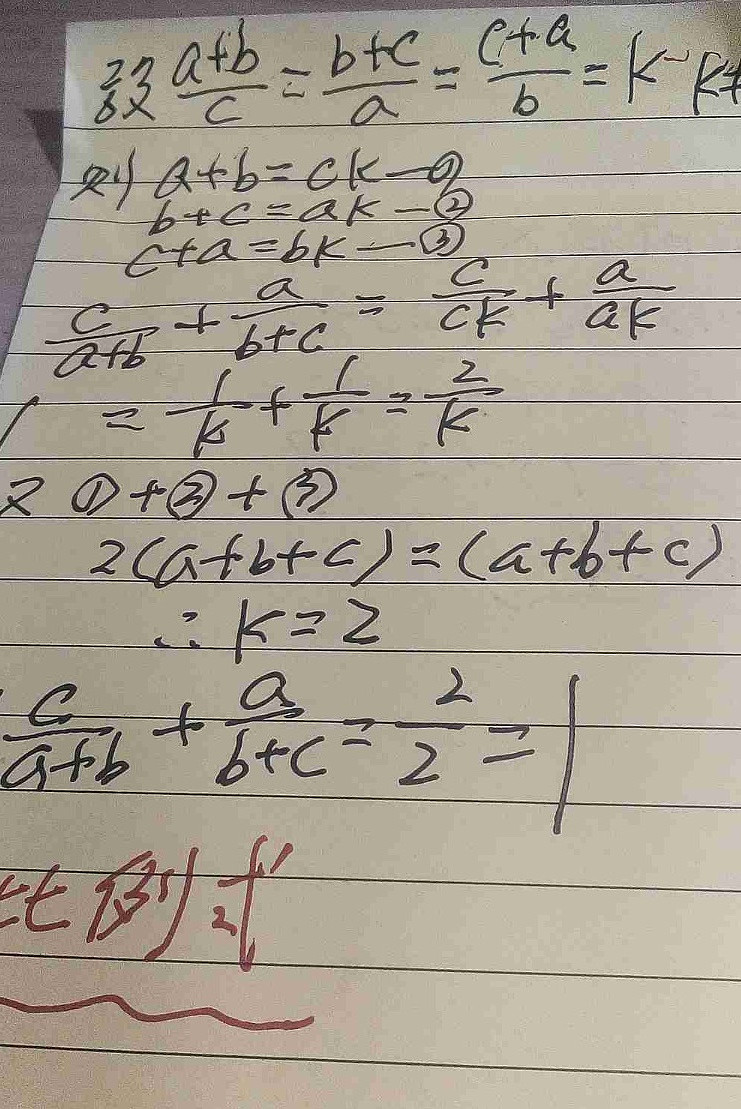 設 (a+b)/c = (b+c)/a = (c+a)/b = k
則 a+b=ck—①
b+c=ak—②
c+a=bk—③
c/(a+b) + a/(b+c) = c/(ck) + a/(ak)
= 1/k + 1/k = 2/k
又 ①+②+③
2(a+b+c)=(a+b+c)
∴ k=2
c/(a+b) + a/(b+c) = 2/2 = 1
比例式